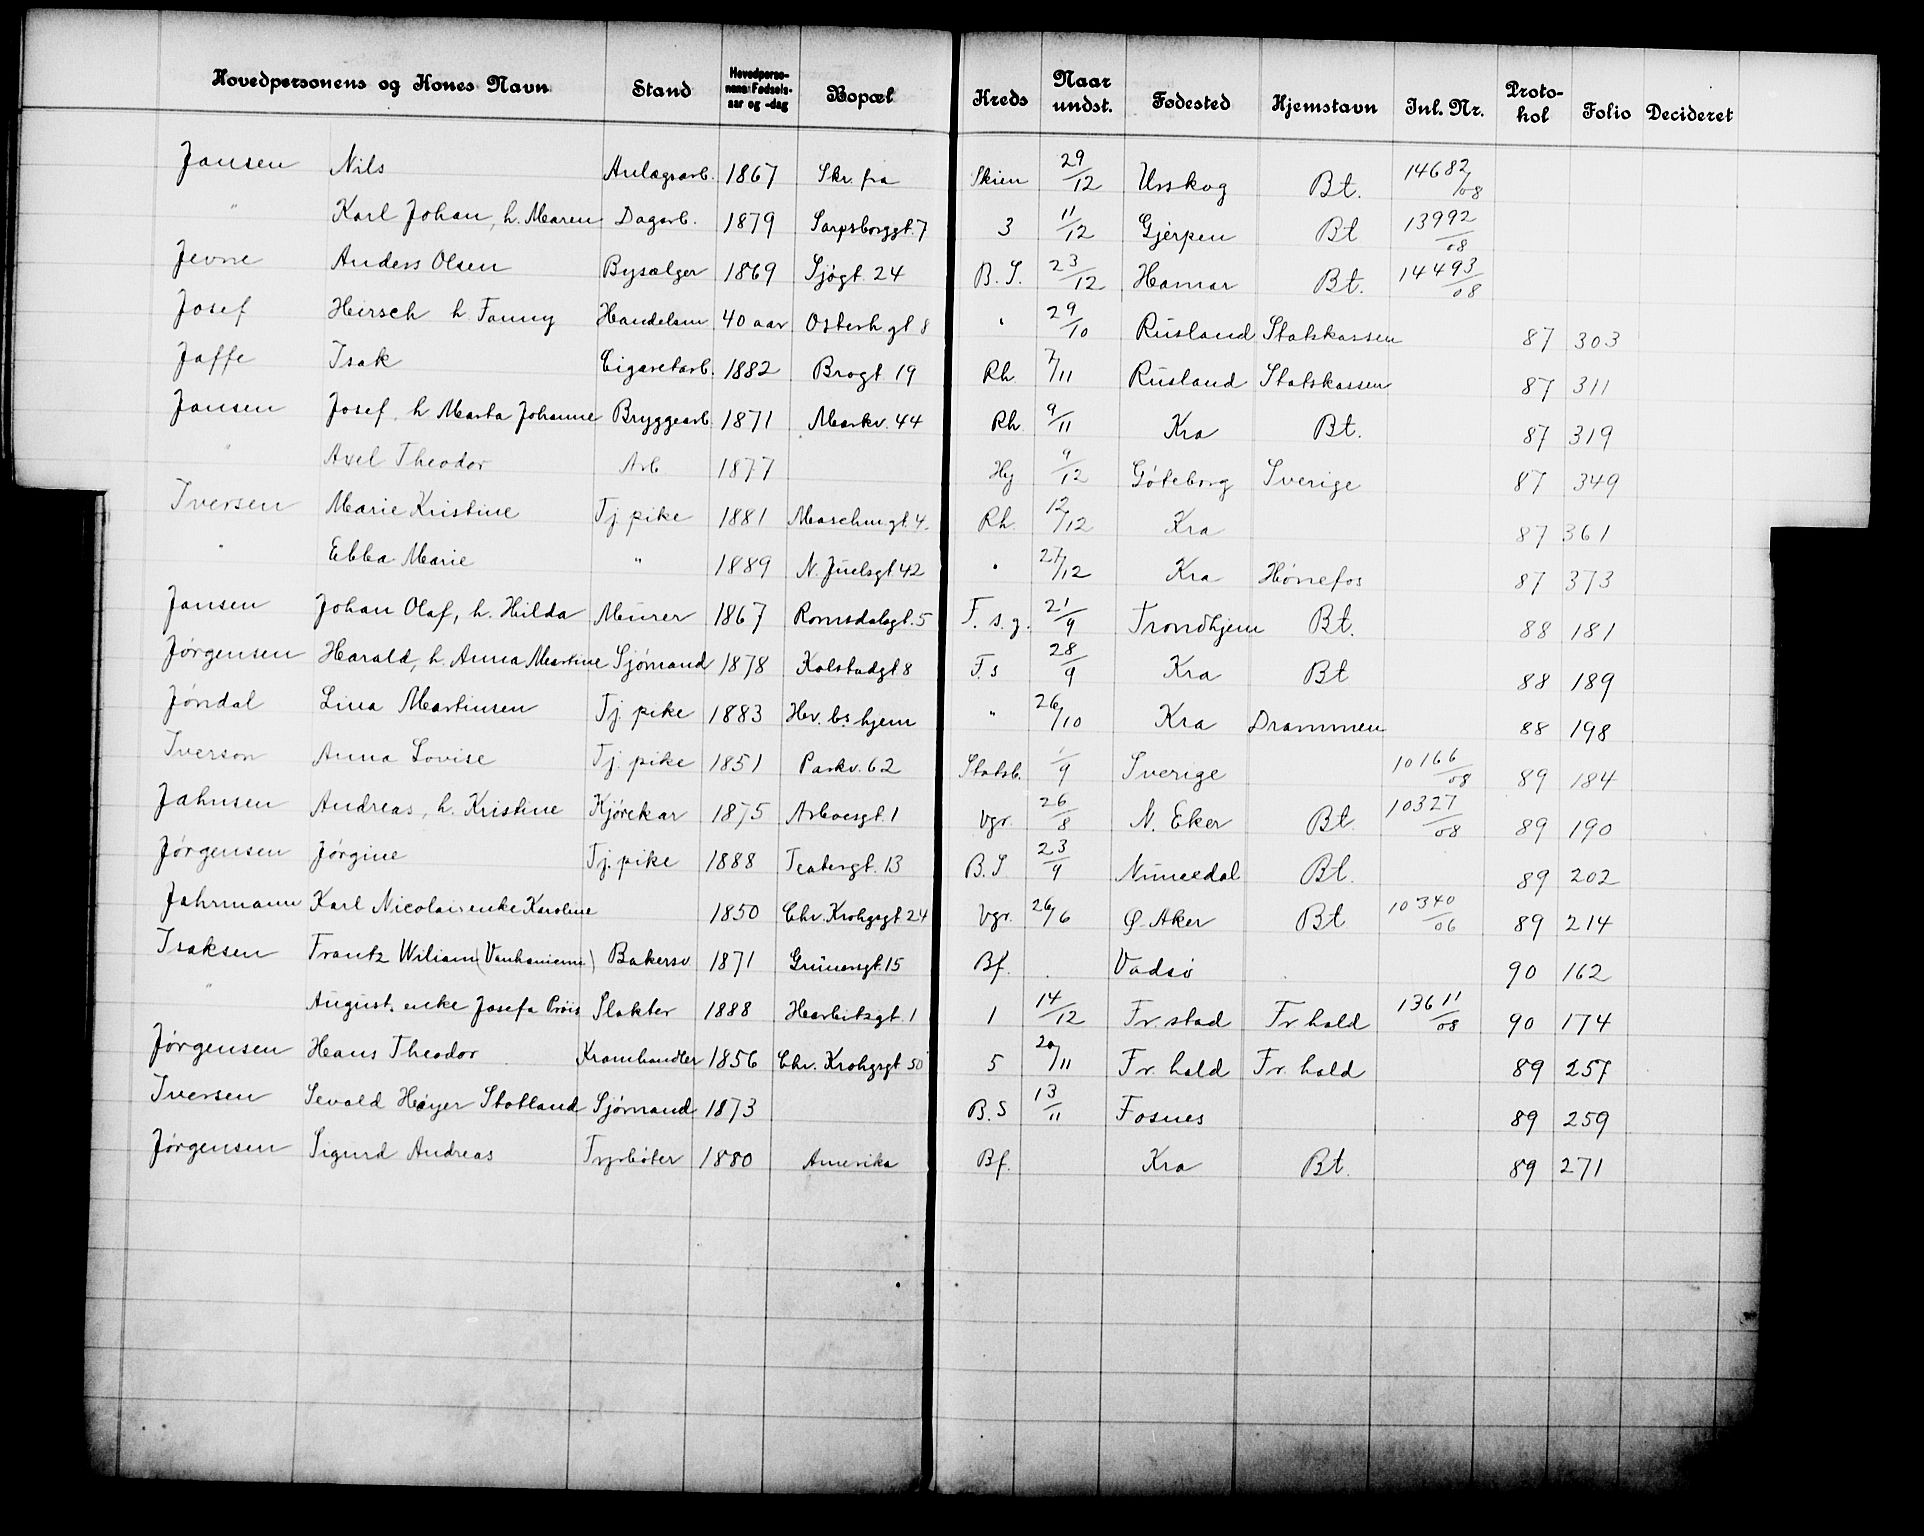 Hovedpersonens og Kones Navn Stand Hovedperso-nens Fødsels-aar og -dag Bopæl Kreds Naar undst. Fødested Hjemstavn Inl. Nr. Proto-kol Folio Decideret
Jansen Nils Anlægsarb. 1867 Skr. fra Skien 29/12 Urskog Bt. 14682/08
" Karl Johan, h. Maren Dagarb. 1879 Sarpsborggt. 7 3 11/12 Gjerpen Bt 13992/08
Jevne Anders Olsen Bysælger 1869 Sjøgt. 24 B. S. 23/12 Hamar Bt. 14493/08
Josef Hirsch h. Fanny Handelsm 40 aar Osterh gt 8 " 29/10 Rusland Statskassen 87 303
Jaffe Isak Cigaretarb. 1882 Brogt 19 Rh 7/11 Rusland Statskassen 87 311
Jansen Josef, h Marta Johanne Bryggearb. 1871 Markv. 44 Rh. 9/11 Kra Bt. 87 319
" Axel Theodor Arb 1877 Hj 9/12 Göteborg Sverige 87 349
Iversen Marie Kristine Tj. pike 1881 Maschm.gt. 4. Rh. 12/12 Kra 87 361
" Ebba Marie " 1889 N. Juelsgt 42 " 21/12 Kra Hönefos 87 373
Jansen Johan Olaf, h. Hilda Murer 1867 Romsdalsgt. 5 F. s. g. 21/9 Trondhjem Bt. 88 181
Jørgensen Harald, h. Anna Martine Sjömand 1878 Kolstadgt 8 F. s 28/9 Kra Bt 88 189
Jøndal Lina Martinsen Tj. pike 1883 Hv. bs hjem " 26/10 Kra Drammen 88 198
Iverson Anna Lovise Tj. pike 1851 Parkv. 62 Statsb. 1/9 Sverige 10166/08 89 184
Jahnsen Andreas, h. Kristine Kjörekar 1875 Arboesgt. 1 Vgr. 26/8 N. Eker Bt. 10327/08 89 190
Jørgensen Jørgine Tj. pike 1888 Teatergt. 13 B. S 23/9 Numedal Bt. 89 202
Jahrmann Karl Nicolais enke Karoline 1850 Chr. Krohgsgt 24 Vgr. 26/6 Ø. Aker Bt 10340/06 89 214
Isaksen Frantz Wiliam (Vanhanienn) Bakersv 1871 Grünersgt. 15 Bf. Vadsö 90 162
" August, enke Josefa Pröis Slakter 1888 Harbitzgt. 1 1 14/12 Fr. stad Fr. hald 13611/08 90 174
Jørgensen Hans Theodor Kramhandler 1856 Chr. Krohgsgt 50 5 20/11 Fr. hald Fr. hald 89 257
Iversen Sevald Høyer Stotland Sjömand 1873 B. S 13/11 Fosnes 89 259
Jørgensen Sigurd Andreas Fyrböter 1880 Amerika Bf. Kra Bt. 89 271